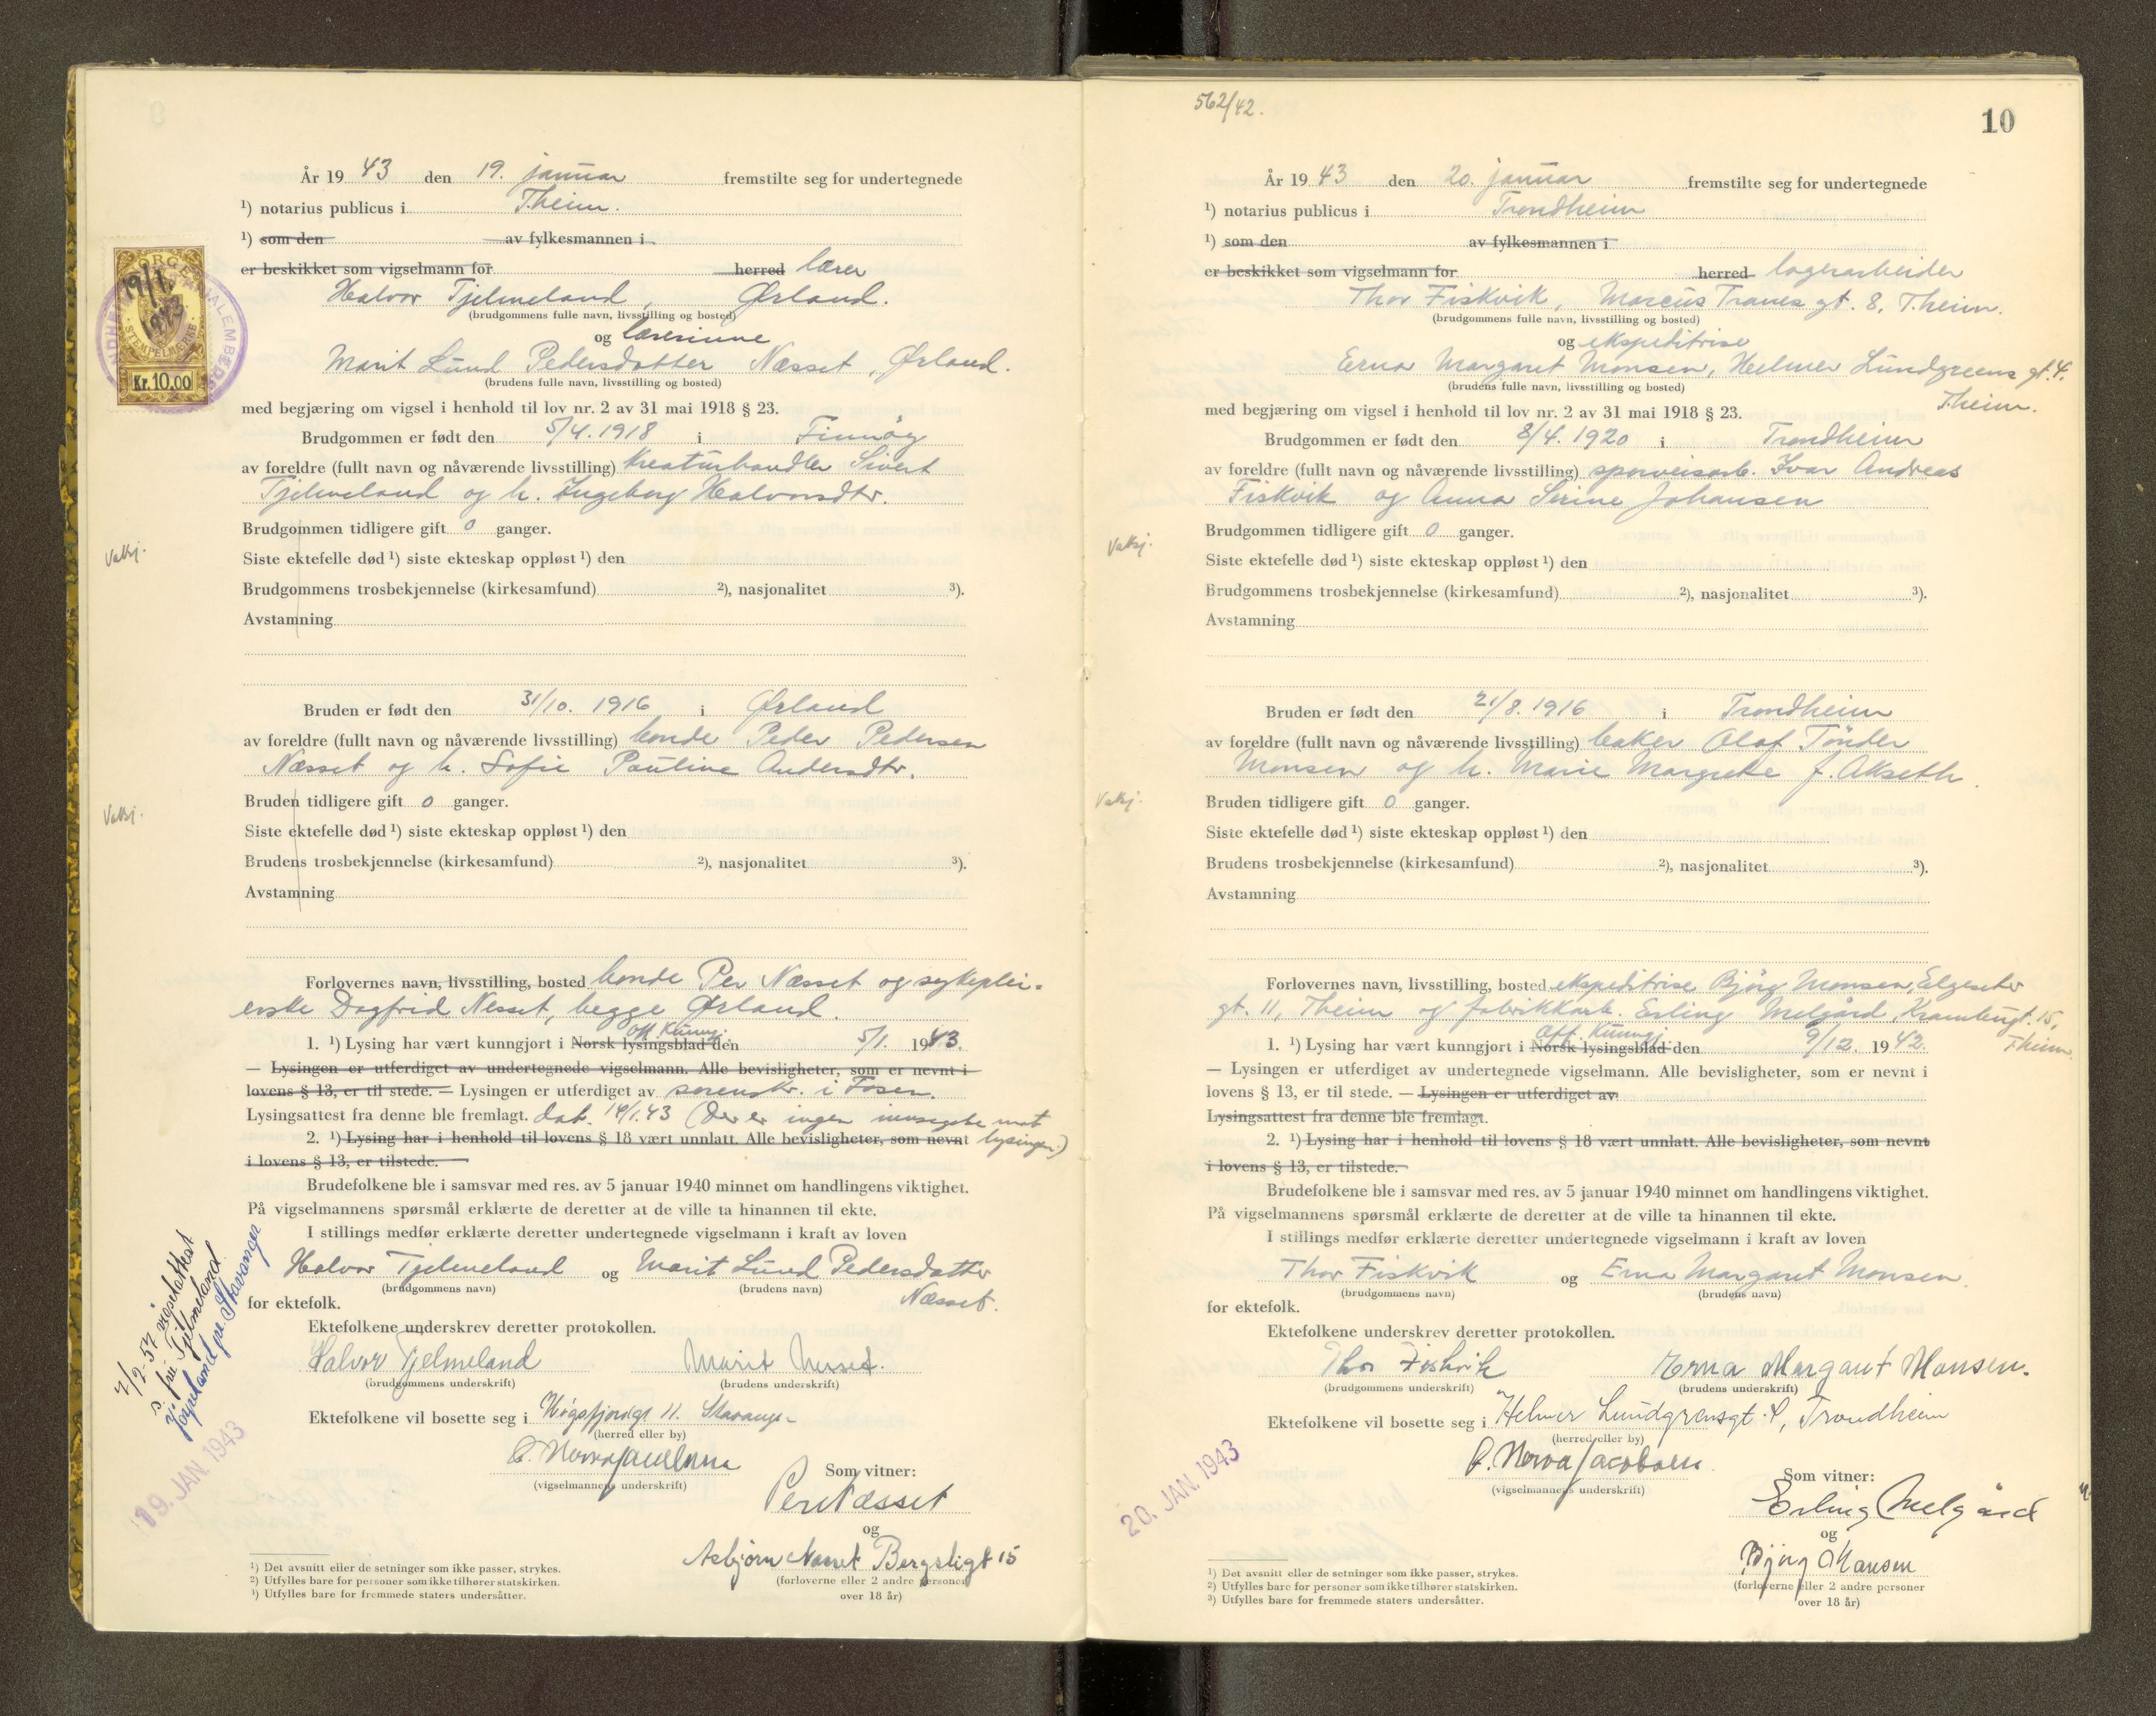 År 19 43 den 19. januar fremstilte seg for undertegnede
¹) notarius publicus i T.heim.
¹) som den av fylkesmannen i
er beskikket som vigselmann for herred lærer
Halvor Tjelmeland, Ørland.
(brudgommens fulle navn, livsstilling og bosted)
og lærerinne
Marit Lund Pedersdatter Næsset, Ørland.
(brudens fulle navn, livsstilling og bosted)
med begjæring om vigsel i henhold til lov nr. 2 av 31 mai 1918 § 23.
Brudgommen er født den 5/4. 1918 i Finnøy
av foreldre (fullt navn og nåværende livsstilling) kreaturhandler Sivert
Tjelmeland og h. Ingeborg Halvorsdtr.
Brudgommen tidligere gift 0 ganger.
Vaksj.
Siste ektefelle død ¹) siste ekteskap oppløst ¹) den
Brudgommens trosbekjennelse (kirkesamfund) ²), nasjonalitet ³).
Avstamning
Bruden er født den 31/10. 1916 i Ørland
av foreldre (fullt navn og nåværende livsstilling) bonde Peder Pedersen
Næsset og h. Sofie Pauline Andersdtr.
Bruden tidligere gift 0 ganger.
Vaksj.
Siste ektefelle død ¹) siste ekteskap oppløst ¹) den
Brudens trosbekjennelse (kirkesamfund) ²), nasjonalitet ³).
Avstamning
Forlovernes navn, livsstilling, bosted bonde Per Næsset og sykeplei-
erske Dagfrid Nesset, begge Ørland.
off. Kunngj.
1. ¹) Lysing har vært kunngjort i Norsk lysingsblad den 5/1. 1943.
— Lysingen er utferdiget av undertegnede vigselmann. Alle bevisligheter, som er nevnt i
lovens § 13, er til stede. — Lysingen er utferdiget av sorenskr. i Fosen.
Lysingsattest fra denne ble fremlagt. dat. 14/1.43 (Der er ingen innsigelse mot
2. ¹) Lysing har i henhold til lovens § 18 vært unnlatt. Alle bevisligheter, som nevnt lysingen)
i lovens § 13, er tilstede.
Brudefolkene ble i samsvar med res. av 5 januar 1940 minnet om handlingens viktighet.
På vigselmannens spørsmål erklærte de deretter at de ville ta hinannen til ekte.
I stillings medfør erklærte deretter undertegnede vigselmann i kraft av loven
Halvor Tjelmeland og Marit Lund Pedersdatter
(brudgommens navn) (brudens navn) Næsset.
for ektefolk.
Ektefolkene underskrev deretter protokollen.
Halvor Tjelmeland Marit Nesset.
(brudgommens underskrift) (brudens underskrift)
Ektefolkene vil bosette seg i Høgsfjordgt 11. Stavanger
(herred eller by)
(vigselmannens underskrift)
Som vitner:
Per Næsset
og
Asbjørn Næsset Bergsligt 15
(forloverne eller 2 andre personer
over 18 år)
¹) Det avsnitt eller de setninger som ikke passer, strykes.
²) Utfylles bare for personer som ikke tilhører statskirken.
¹) Utfylles bare for fremmede staters undersåtter.
vigselattest
fru Tjelmeland
Stavanger
19. JAN. 1943
19/1.
1943
STEMPELMERKE
Kr. 10,00
562/42.
10
År 19 43 den 20. januar fremstilte seg for undertegnede
¹) notarius publicus i Trondheim
¹) som den av fylkesmannen i
er beskikket som vigselmann for herred lagerarbeider
Thor Fiskvik, Marcus Tranes gt. 8, T.heim.
(brudgommens fulle navn, livsstilling og bosted)
og ekspeditrise
Erna Margaret Monsen, Helmer Lundgreens gt. 4.
(brudens fulle navn, livsstilling og bosted)
T.heim.
med begjæring om vigsel i henhold til lov nr. 2 av 31 mai 1918 § 23.
Brudgommen er født den 8/4. 1920 i Trondheim
av foreldre (fullt navn og nåværende livsstilling) sporveisarb. Ivar Andreas
Fiskvik og Anna Serine Johansen
Brudgommen tidligere gift 0 ganger.
Vaksj.
Siste ektefelle død ¹) siste ekteskap oppløst ¹) den
Brudgommens trosbekjennelse (kirkesamfund) ²), nasjonalitet ³).
Avstamning
Bruden er født den 21/8. 1916 i Trondheim
av foreldre (fullt navn og nåværende livsstilling) baker Olaf Tönder
Monsen og h. Marie Margrete f. Akseth
Bruden tidligere gift 0 ganger.
Vaksj.
Siste ektefelle død ¹) siste ekteskap oppløst ¹) den
Brudens trosbekjennelse (kirkesamfund) ²), nasjonalitet ³).
Avstamning
Forlovernes navn, livsstilling, bosted ekspeditrise Bjørg Monsen, Elgeseter
gt. 11, T.heim og fabrikkarb. Erling Melgård, Krambugt. 15,
Off. Kunngj. T.heim.
1. ¹) Lysing har vært kunngjort i Norsk lysingsblad den 9/12. 1942.
— Lysingen er utferdiget av undertegnede vigselmann. Alle bevisligheter, som er nevnt i
lovens § 13, er til stede. — Lysingen er utferdiget av
Lysingsattest fra denne ble fremlagt.
2. ¹) Lysing har i henhold til lovens § 18 vært unnlatt. Alle bevisligheter, som nevnt
i lovens § 13, er tilstede.
Brudefolkene ble i samsvar med res. av 5 januar 1940 minnet om handlingens viktighet.
På vigselmannens spørsmål erklærte de deretter at de ville ta hinannen til ekte.
I stillings medfør erklærte deretter undertegnede vigselmann i kraft av loven
Thor Fiskvik og Erna Margaret Monsen.
(brudgommens navn) (brudens navn)
for ektefolk.
Ektefolkene underskrev deretter protokollen.
Thor Fiskvik Erna Margaret Monsen.
(brudgommens underskrift) (brudens underskrift)
Ektefolkene vil bosette seg i Helmer Lundgrensgt. 4, Trondheim
(herred eller by)
Jacobsen
(vigselmannens underskrift)
Som vitner:
Erling Melgård
og
Bjørg Monsen
(forloverne eller 2 andre personer
over 18 år)
20. JAN. 1943
¹) Det avsnitt eller de setninger som ikke passer, strykes.
²) Utfylles bare for personer som ikke tilhører statskirken.
³) Utfylles bare for fremmede staters undersåtter.